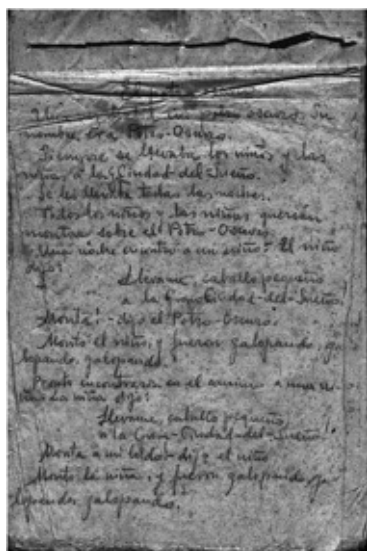 Una vez un potro oscuro. Su
nombre era Potro-Oscuro.
Siempre se llevaba los niños y las
niñas a la Gran Ciudad-del-Sueño.
Se los llevaba todas las noches.
Todos los niños y las niñas querían
montar sobre el Potro-Oscuro.
Una noche encontró a un niño. El niño
dijo:
Llévame, caballo pequeño,
a la Gran-Ciudad-del-Sueño.
¡Monta! -dijo el Potro-Oscuro.
Montó el niño, y fueron galopando, ga
lopando, galopando.
Pronto encontraron en el camino a una ni
ña. La niña dijo:
Llévame, caballo pequeño
a la Gran-Ciudad-del-Sueño!
Monta a mi lado- dijo el niño
Montó la niña, y fueron galopando, ga
lopando, galopando.